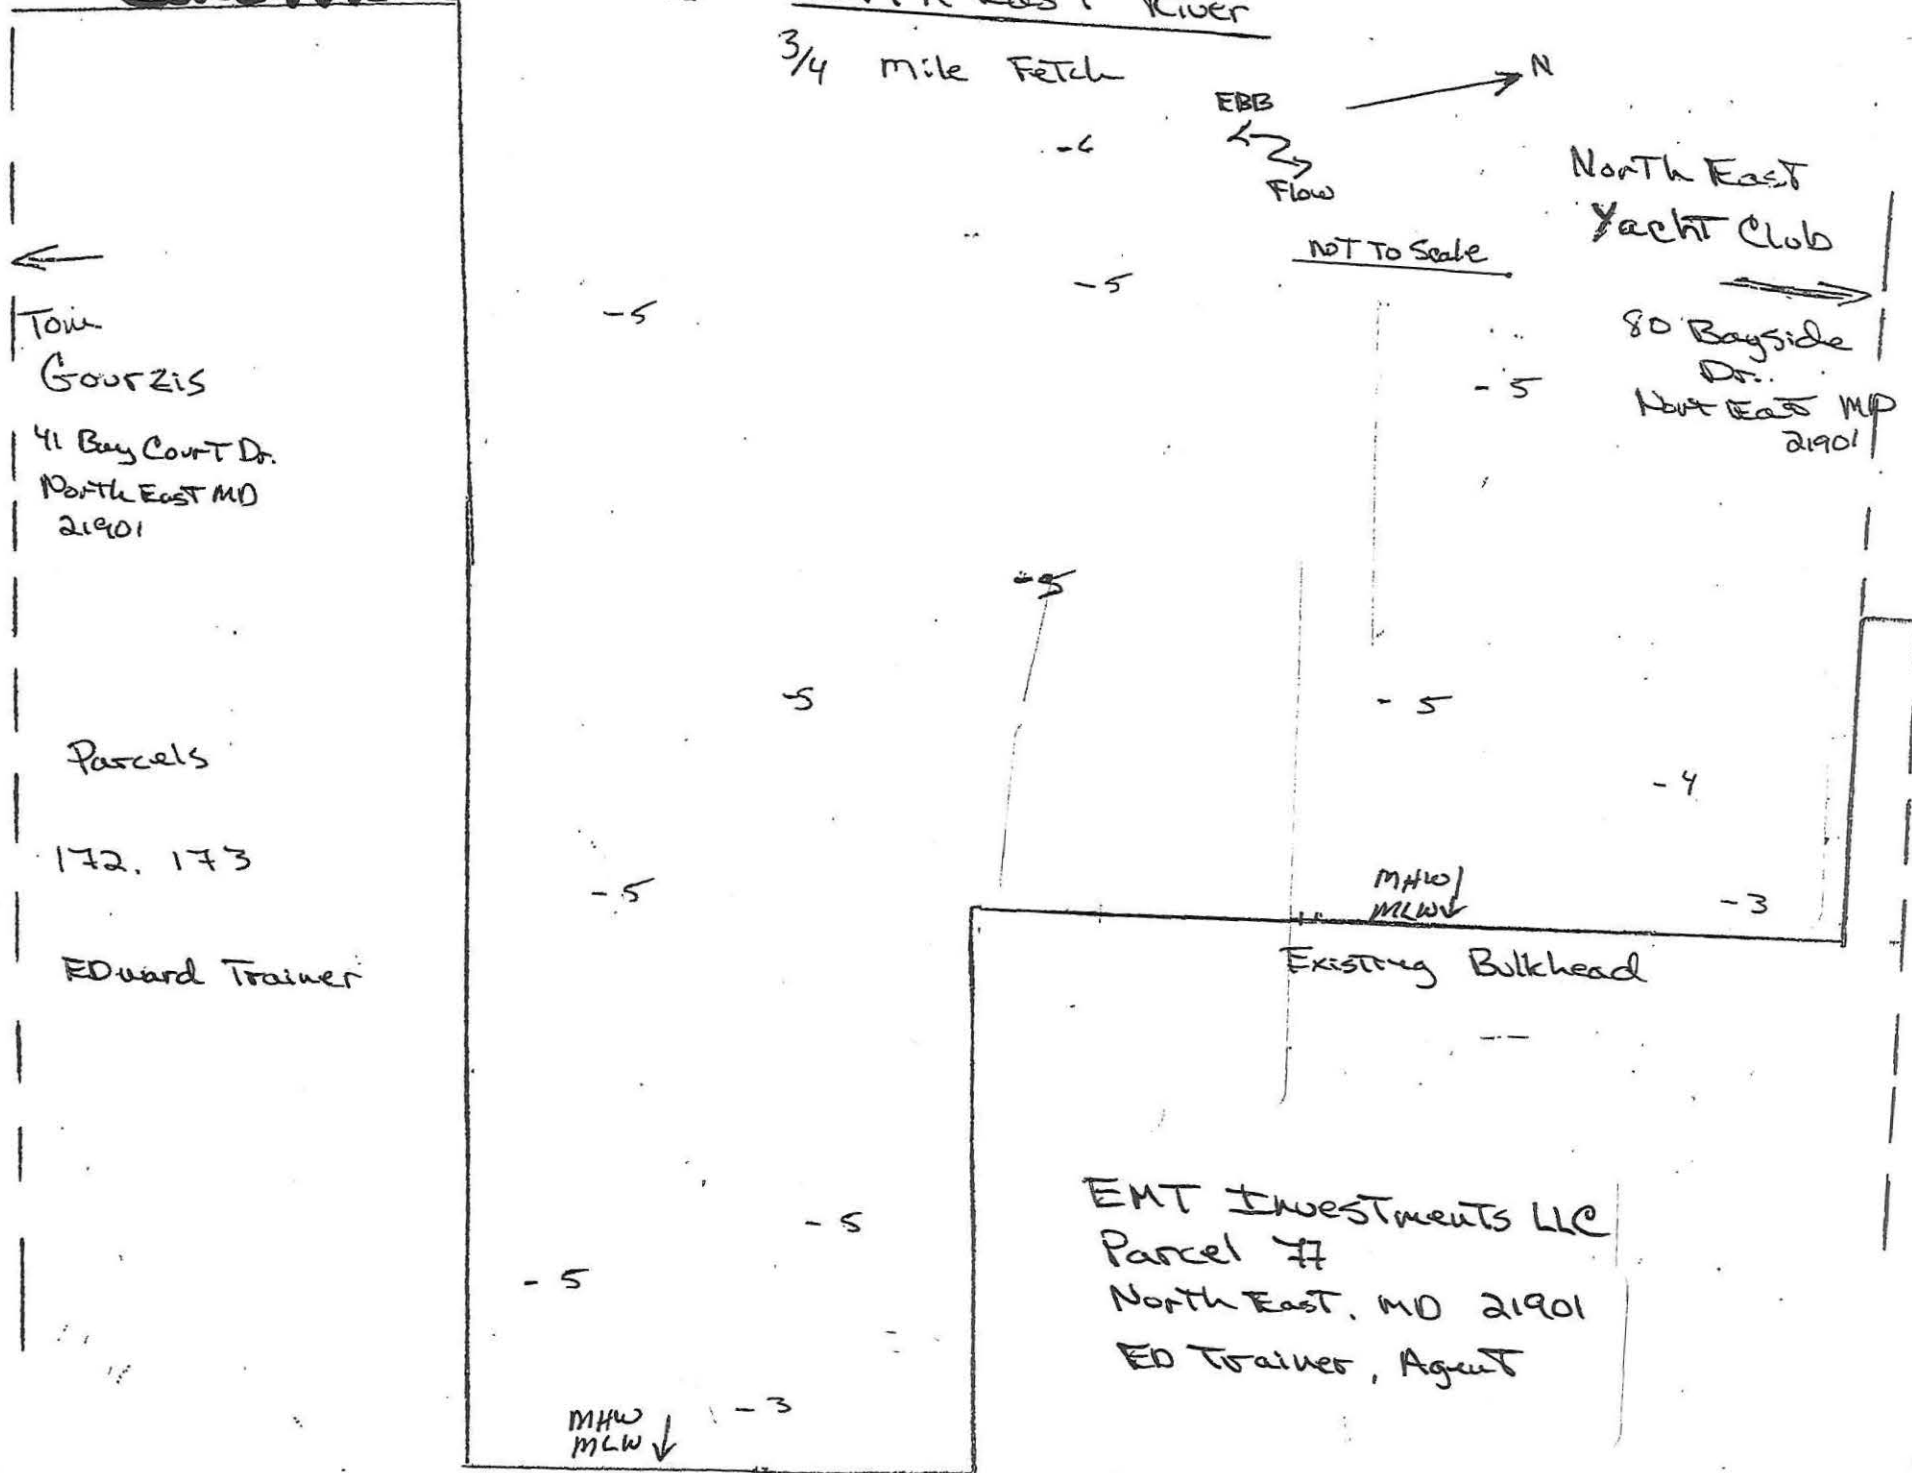 East River
3/4 mile Fetch
N
EBB
Flow
NOT To Scale
North East
Yacht Club
80 Bayside
Dr.
North East MD
21901
Tom
Gourzis
41 Bay Court Dr.
North East MD
21901
Parcels
172, 173
EDward Trainer
-5
-5
-5
-5
-5
-5
-4
-5
-3
MHW
MLW
Existing Bulkhead
-5
-5
-3
MHW
MLW
EMT Investments LLC
Parcel 77
North East, MD 21901
ED Trainer, Agent